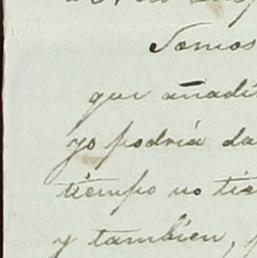 Somos
que añadi
yo podria da
tiempo no tie
y tambien,